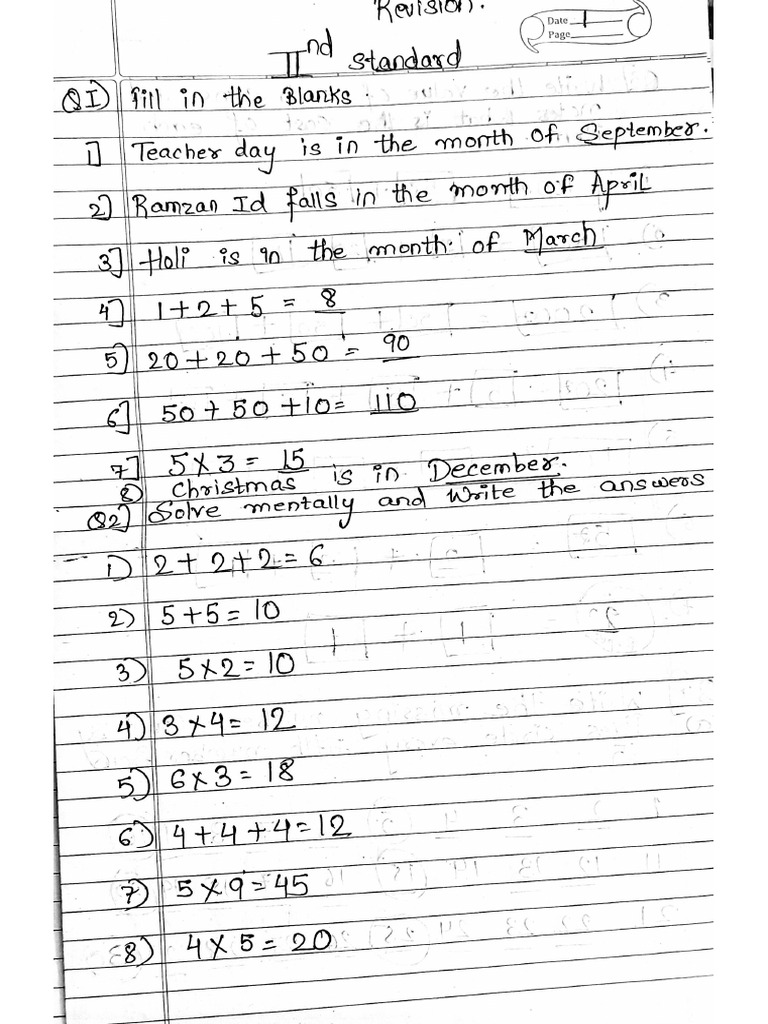 Revision.
Date 1
Page
IInd standard
QI) Fill in the Blanks :
1] Teacher day is in the month of September.
2] Ramzan Id falls in the month of April
3] Holi is in the month of March
4] 1+2+5 = 8
5] 20+20+50 = 90
6] 50+50+10= 110
7] 5×3 = 15
8) Christmas is in December.
Q2] Solve mentally and Write the answers
1) 2+2+2=6
2) 5+5=10
3) 5×2=10
4) 3×4=12
5) 6×3=18
6) 4+4+4=12
7) 5×9=45
8) 4×5=20